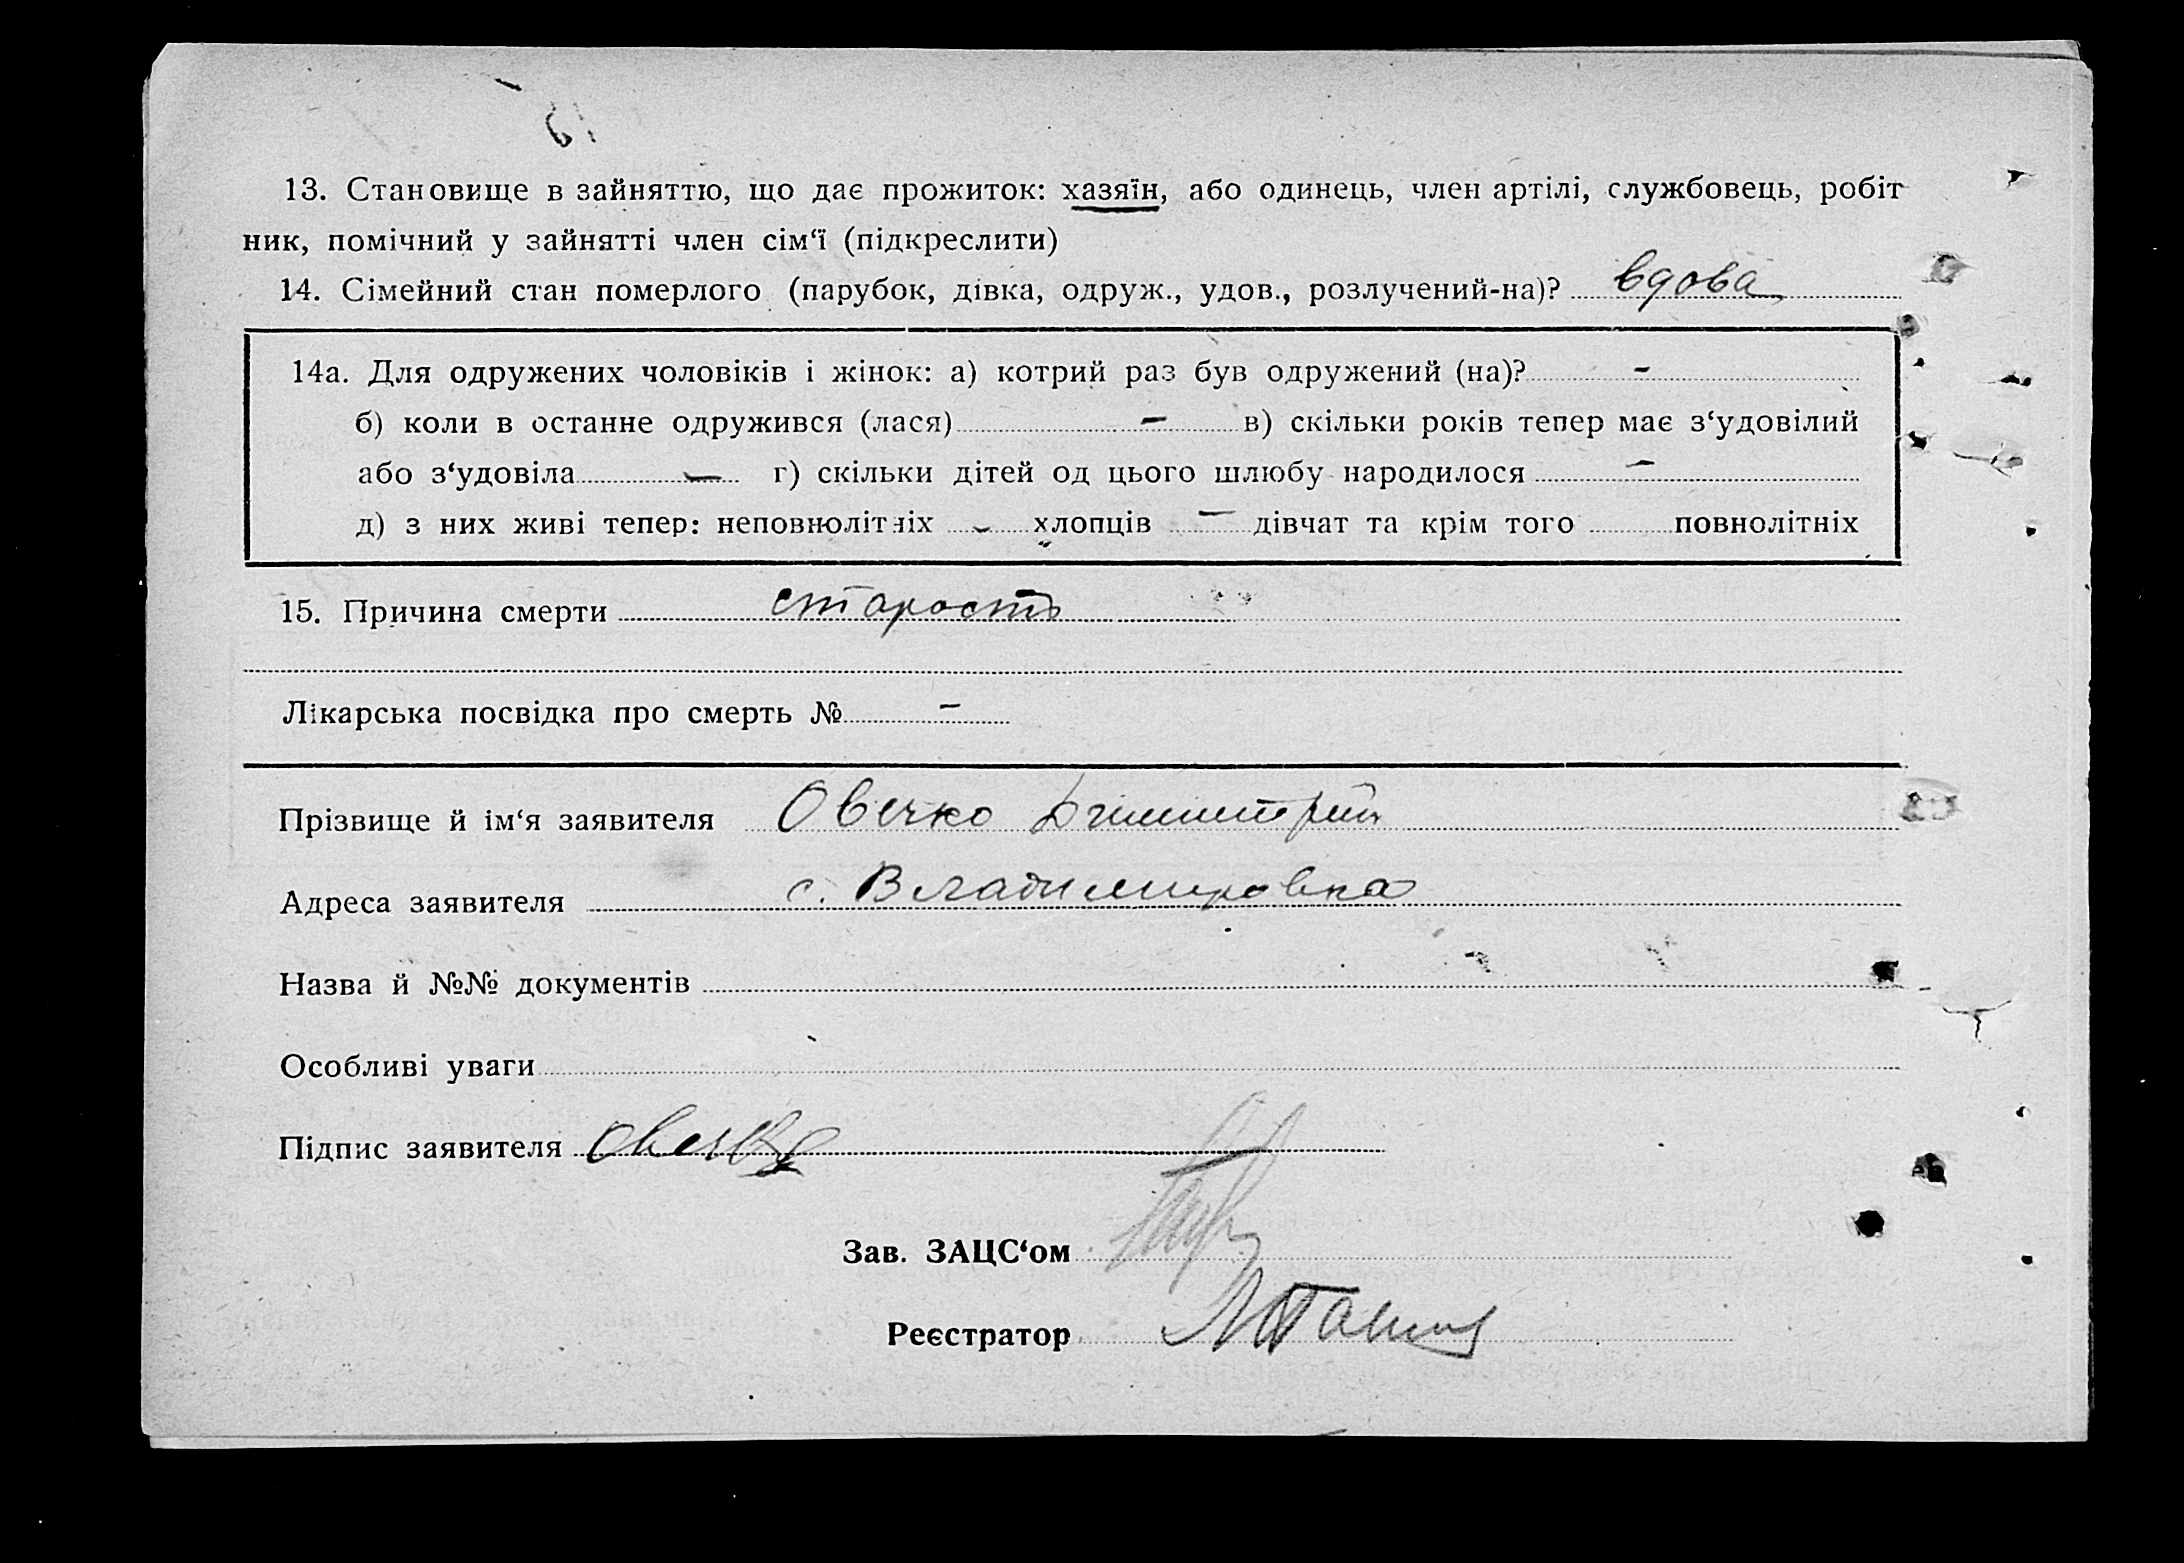 13. Становище в зайняттю, що дає прожиток: хазяїн, або одинець, член артілі, службовець, робіт
ник, помічний у зайнятті член сім‘ї (підкреслити)
14. Сімейний стан померлого (парубок, дівка, одруж., удов., розлучений-на)? вдова
14а. Для одружених чоловіків і жінок: а) котрий раз був одружений (на)? –
б) коли в останнє одружився (лася) – в) скільки років тепер має з‘удовілий
або з‘удовіла – г) скільки дітей од цього шлюбу народилося –
д) з них живі тепер: неповнолітніх – хлопців – дівчат та крім того повнолітніх
15. Причина смерти старость
Лікарська посвідка про смерть № –
Прізвище й ім‘я заявителя Овечко Димитрий
Адреса заявителя с. Владимировка
Назва й №№ документів
Особливі уваги
Підпис заявителя Овечко
Зав. ЗАЦС‘ом
Реєстратор